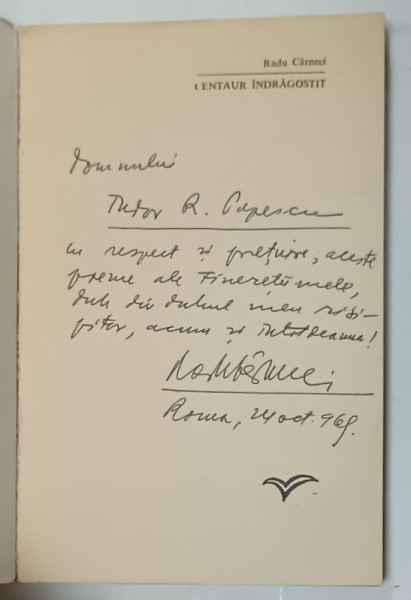 Radu Cârneci
CENTAUR ÎNDRĂGOSTIT
Domnului
Tudor R. Popescu
cu respect și prețuire, aceste
poeme ale tinereții mele,
duh din duhul meu risi-
pitor, acum și întotdeauna!
Radu Cârneci
Roma, 24 oct. 969.